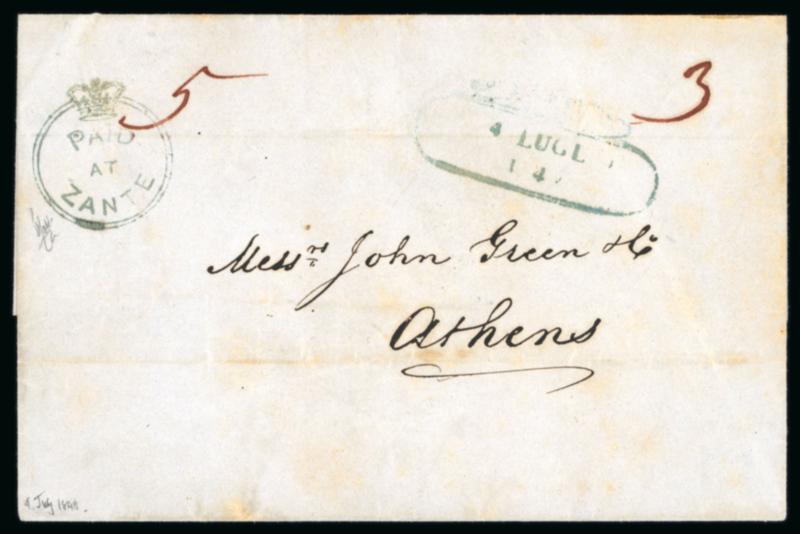 PAID
AT
ZANTE
5
3
4 LUGL
Mess.rs John Green & Co
Athens
4 July